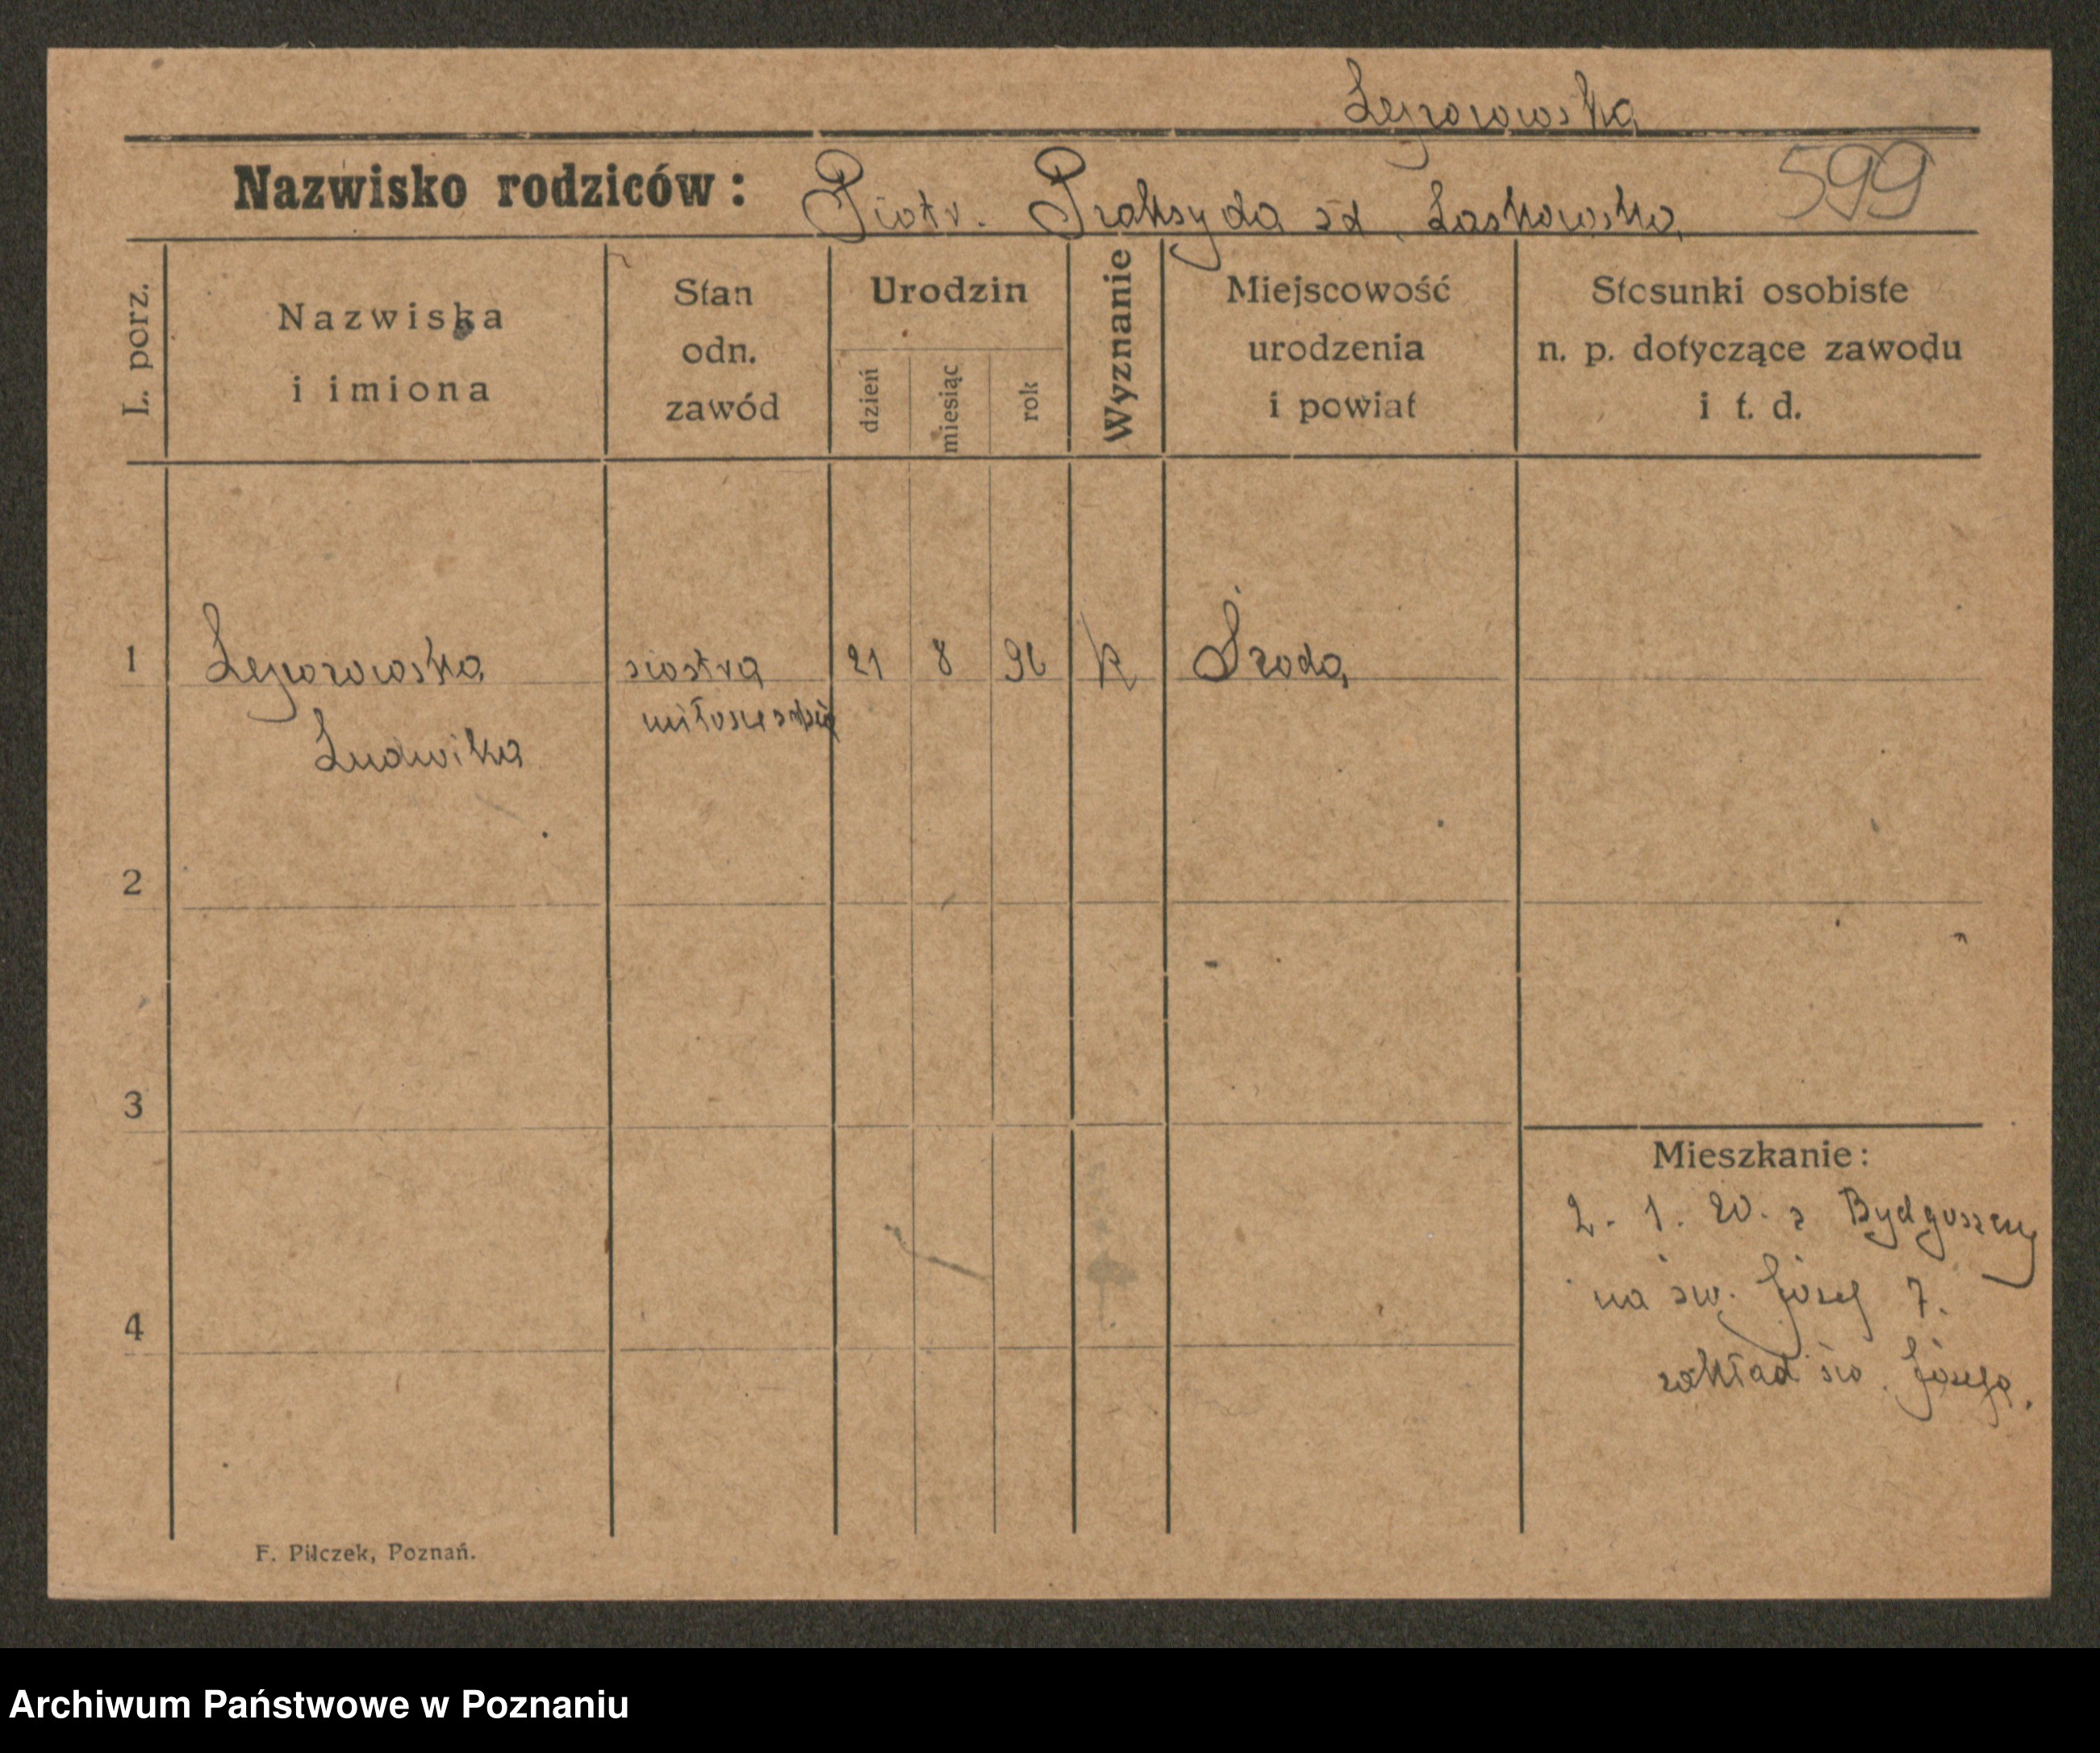 Leporowska
Nazwisko rodziców: Piotr. Praksyda zd. Laskowska 599
L. porz.
Nazwiska
i imiona
Stan
odn.
zawód
Urodzin
dzień
miesiąc
rok
Wyznanie
Miejscowość
urodzenia
i powiat
Stosunki osobiste
n. p. dotyczące zawodu
i t. d.
1 Leporowska siostra 21 8 96 k Środa
Ludwika
2
3
4
Mieszkanie:
2. 1. 20. z Bydgoszczy
na św. Józef 7.
zakład św. Józefa.
F. Pilczek, Poznań.
Archiwum Państwowe w Poznaniu